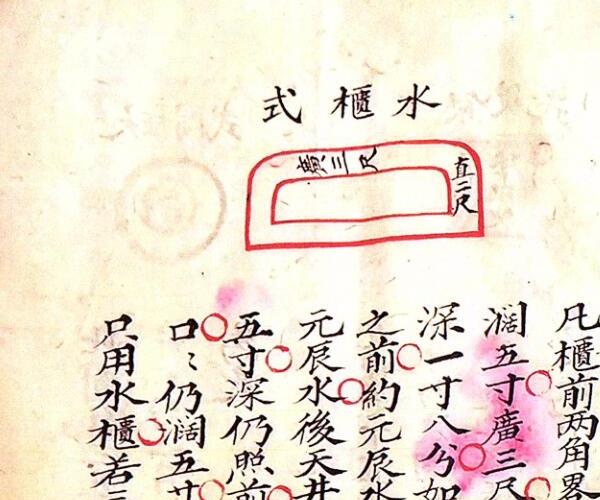 水櫃式
廣三尺
直二尺
凡櫃前两角界
濶五寸廣三尺
深一寸八分如
之前約元辰水
元辰水後天井
五寸深仍照前
口〻仍濶五寸
只用水櫃若三